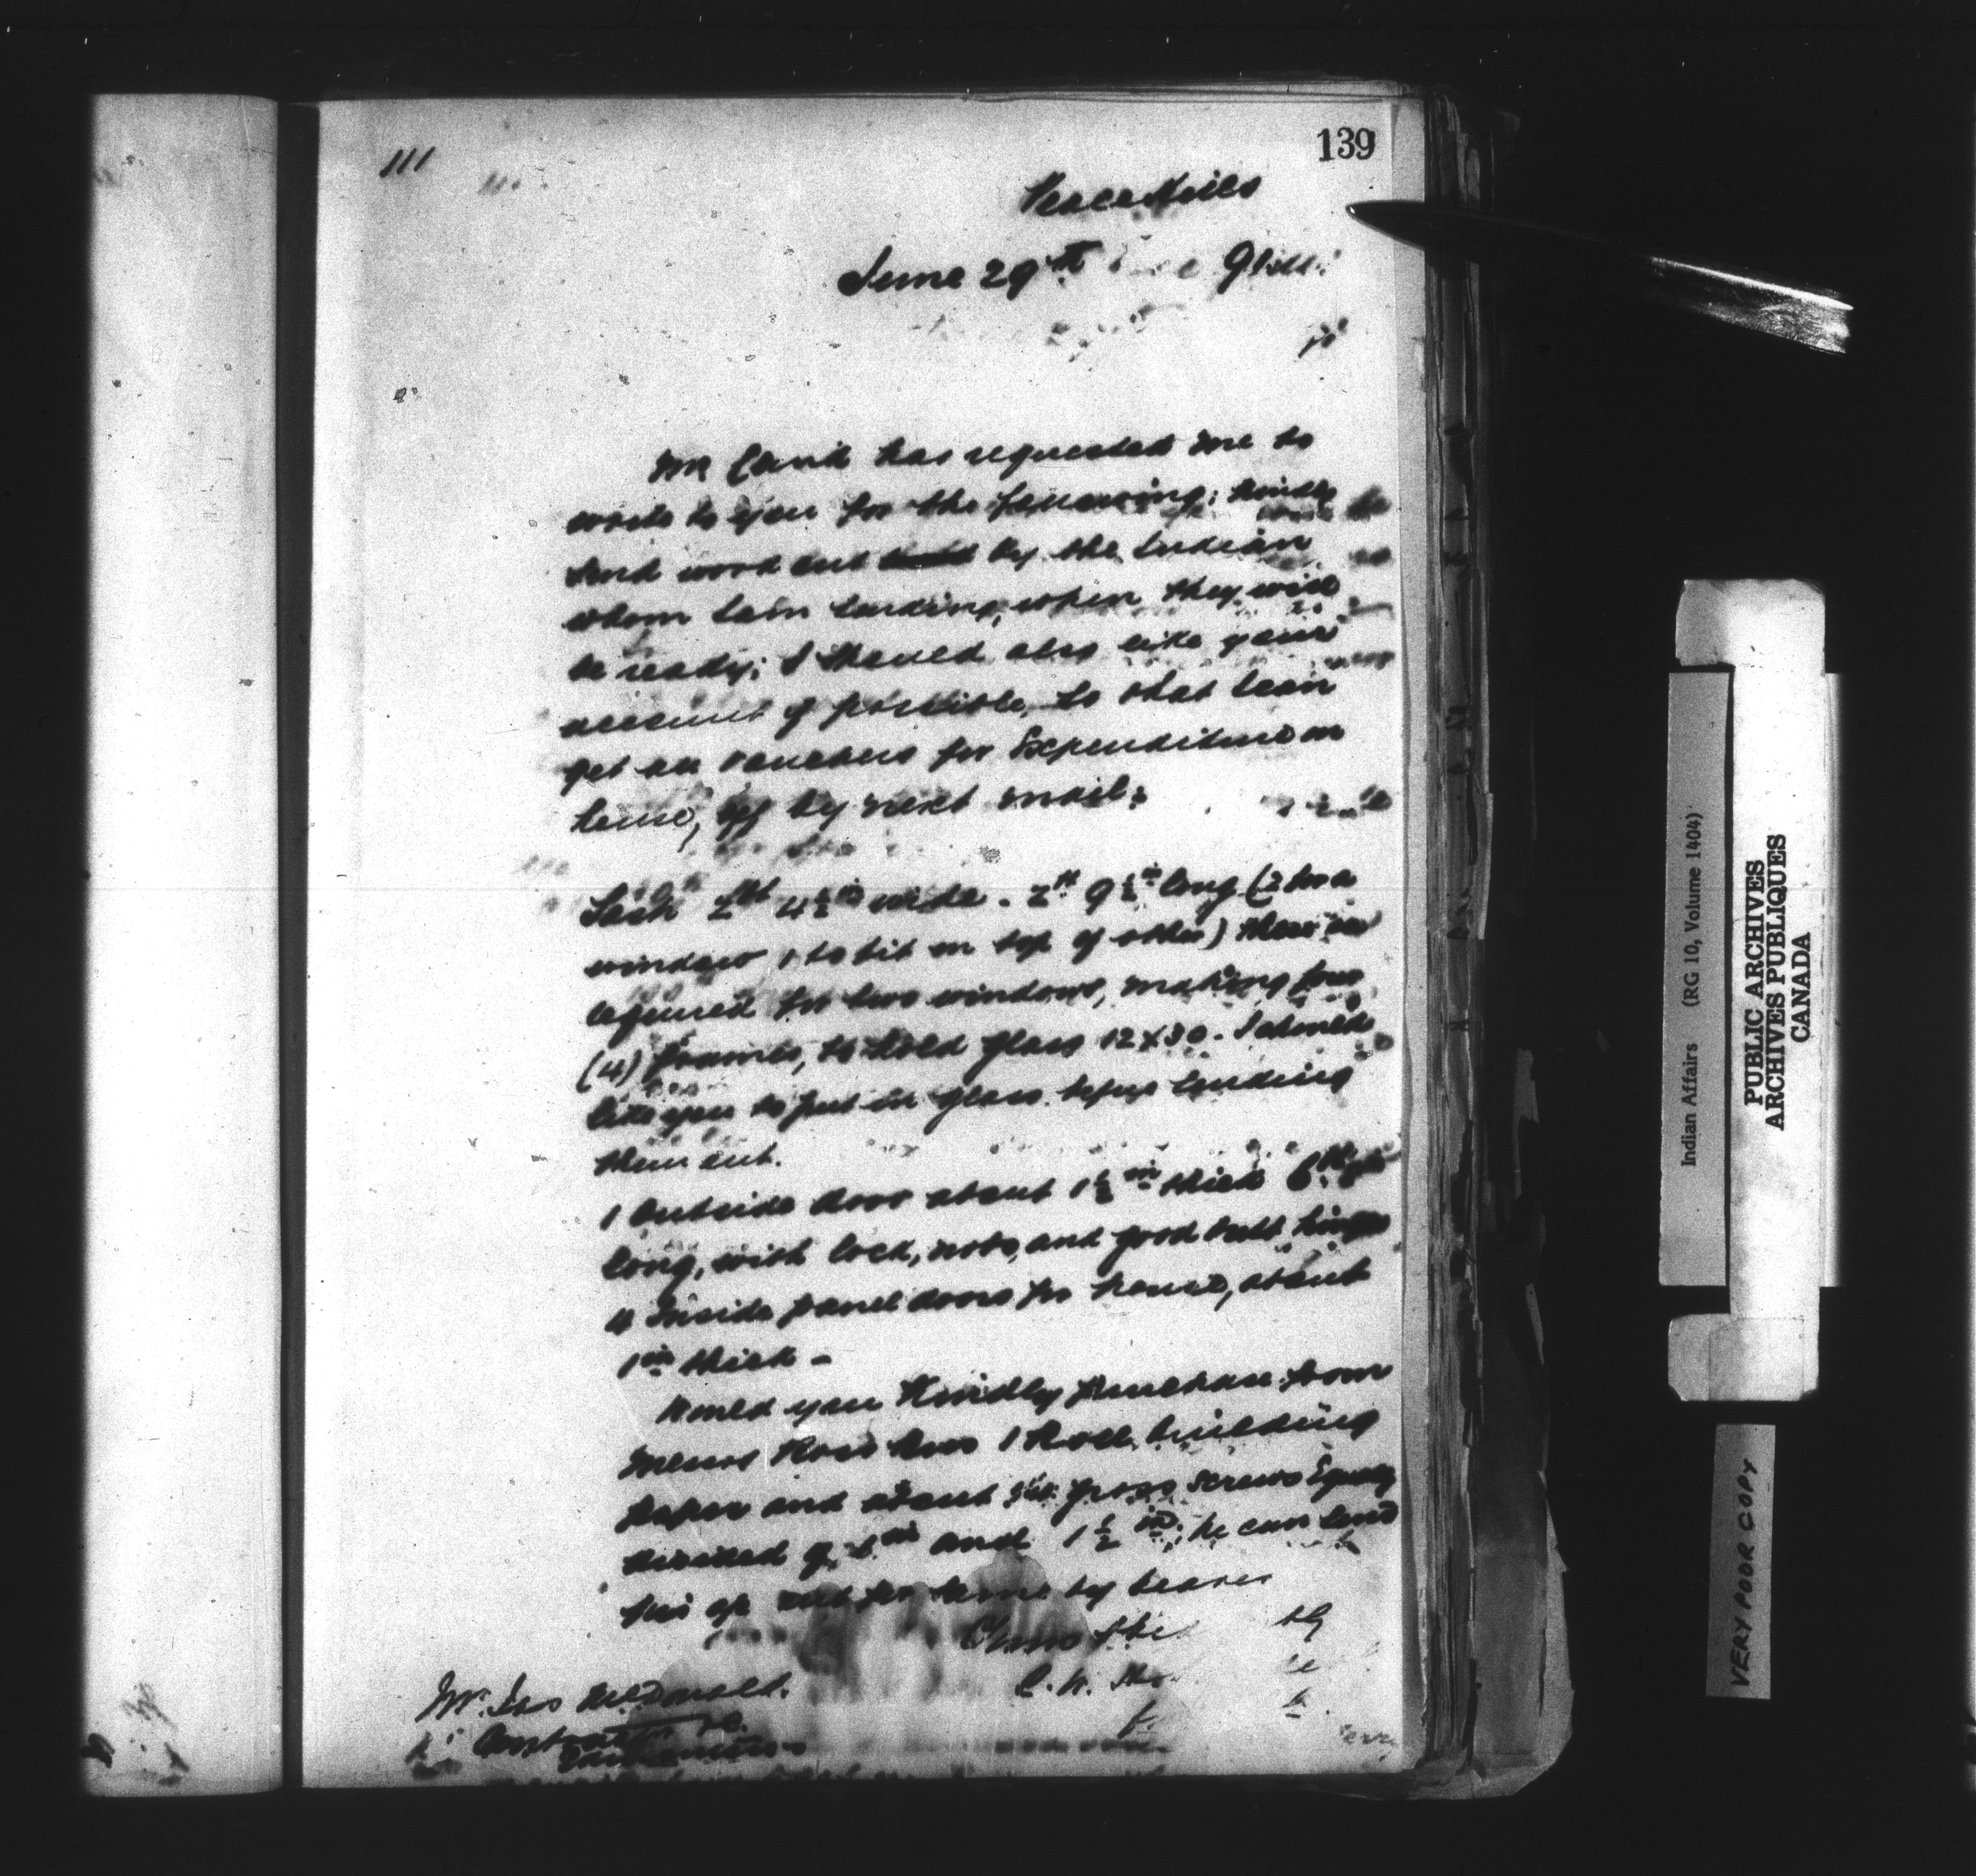 139
111
Peace Hills
June 29th
Mr has requested me to
write to you for the following; kindly
send word out by the Indian
whom I am sending, when they will
be ready; I should also like your
account if possible, so that I can
get all vouchers for Expenditure on
house, off by next mail:
Sash 2ft 4½in wide. 2ft 9½in long (2 for a
window 1 to sit on top of other) these are
required for two windows, making four
(4) frames, to hold glass 12x30. I should
like you to put in glass before sending
them out.
1 Outside door about 1½in thick 6ft
long, with lock, nobs, and good butt hinges
4 Inside panel doors for house, about
1in thick -
Would you Kindly purchase from
Messrs Ross Bros 1 Roll building
paper and about gross screws Equally
divided of in and 1½in; he can send
his for same by bearer
Mr. McDonald.
C. 
Indian Affairs (RG 10, Volume 1404)
PUBLIC ARCHIVES
ARCHIVES PUBLIQUES
CANADA
VERY POOR COPY